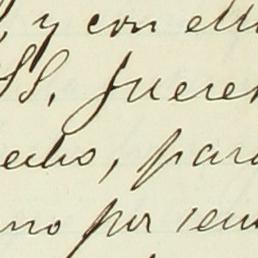 , y con ell
SS. fueren
echo, para
no por